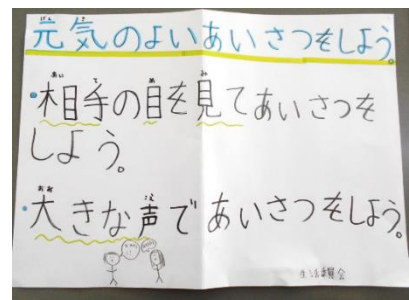 元気のよいあいさつをしよう。
・相手の目を見てあいさつを
しよう。
・大きな声であいさつをしよう。
生活委員会